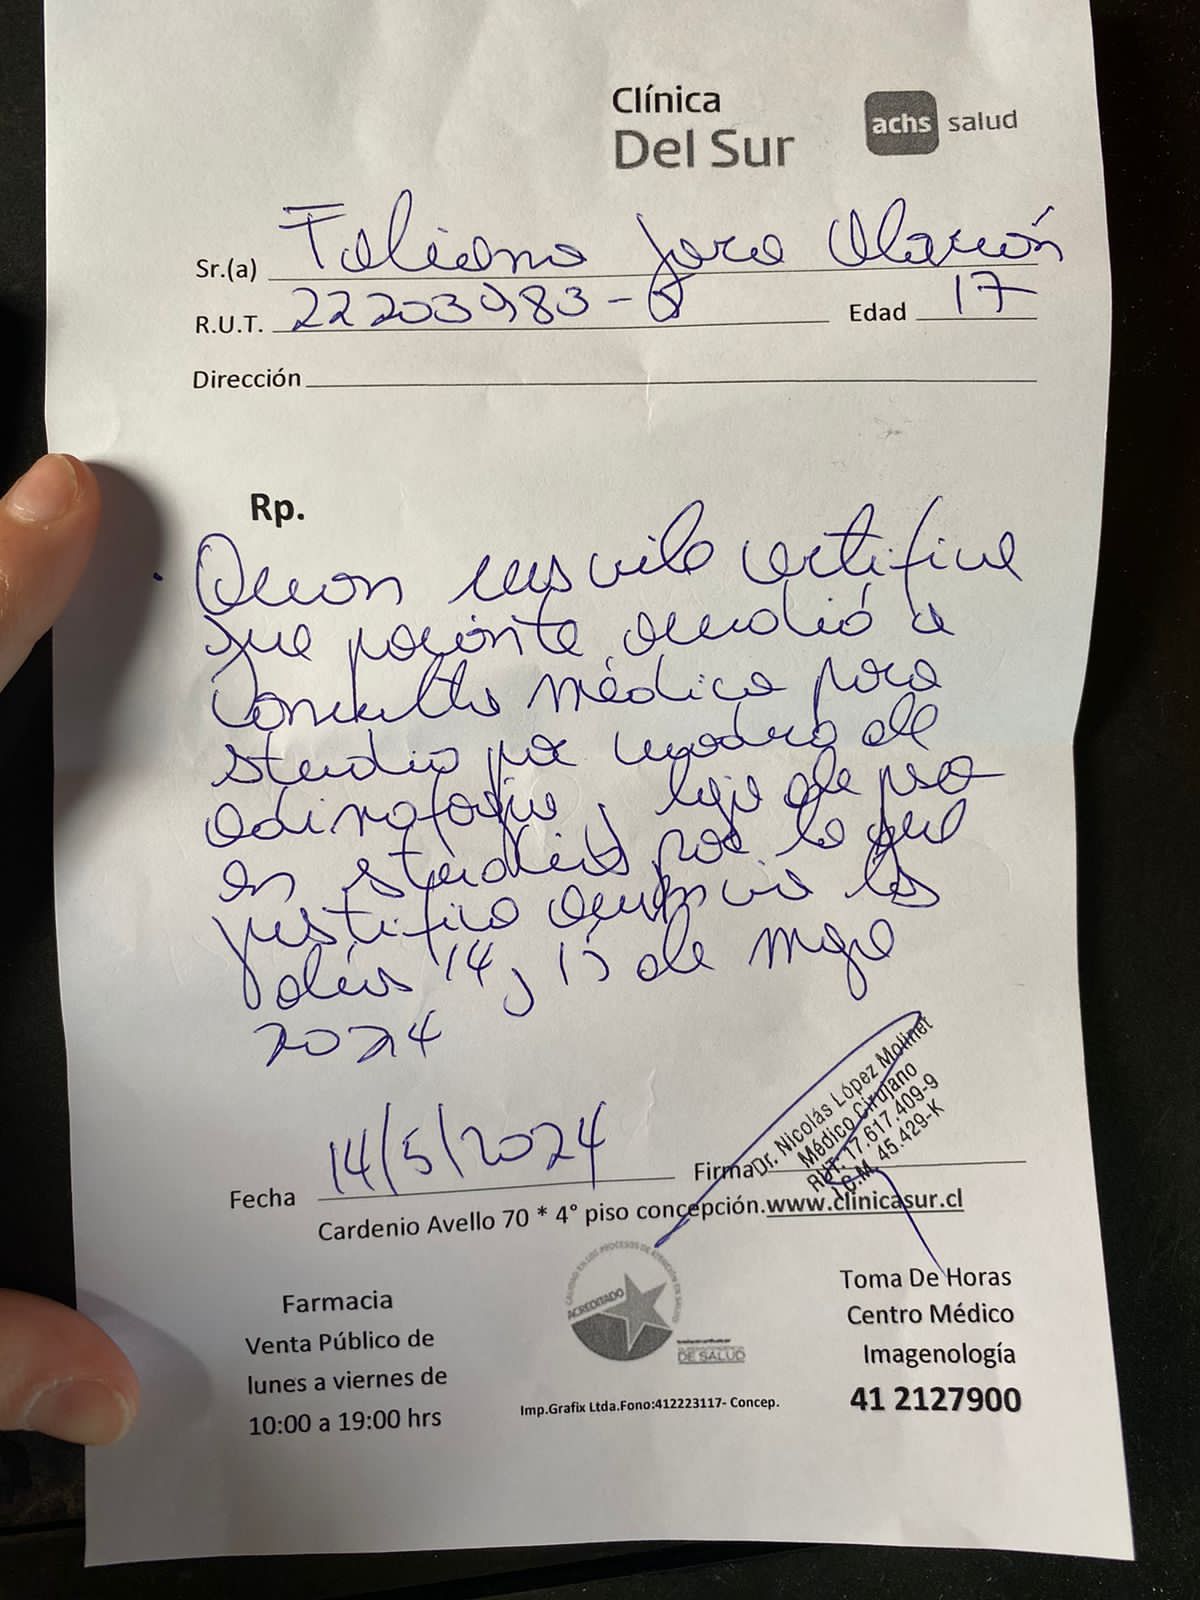 Clínica
Del Sur
achs salud
Sr.(a) Fabiana Jara Alarcón
R.U.T. 22203983- Edad 17
Dirección
Rp.
Quien suscribe certifica
que paciente acudió a
consulta médica para
studio por cuadro de
odinofagia, baja de peso
en studio por lo que
justifico ausencia los
días 14, 15 de mayo
2024
Fecha 14/5/2024 Firma
Dr. Nicolás López Molinet
Médico Cirujano
RUT. 17.617.409-9
I.C.M. 45.429-K
Cardenio Avello 70 * 4° piso concepción.www.clinicasur.cl
Farmacia
Venta Público de
lunes a viernes de
10:00 a 19:00 hrs
CALIDAD EN LOS PROCESOS DE ATENCIÓN EN SALUD
ACREDITADO
DE SALUD
Imp.Grafix Ltda.Fono:412223117- Concep.
Toma De Horas
Centro Médico
Imagenología
41 2127900